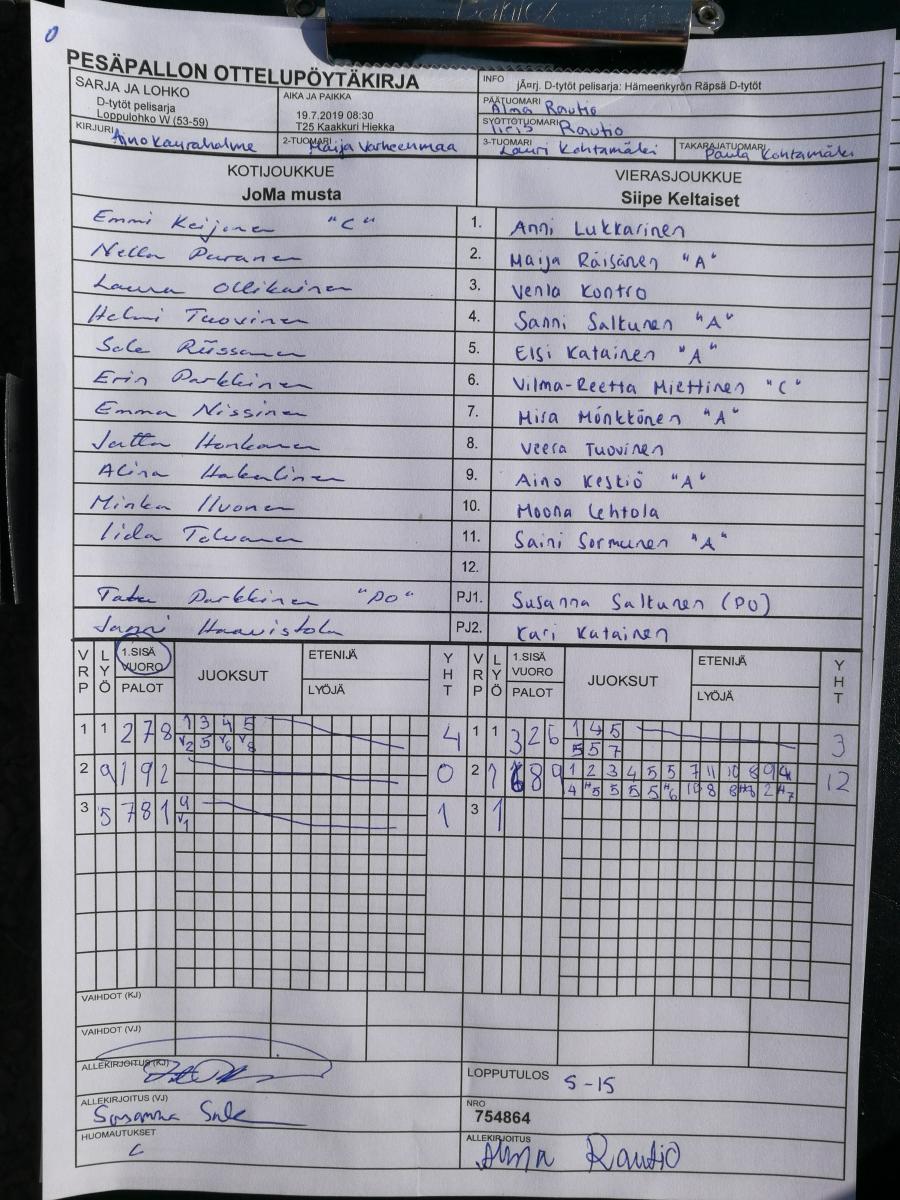 PESÄPALLON OTTELUPÖYTÄKIRJA
SARJA JA LOHKO
D-tytöt pelisarja
Loppulohko W (53-59)
AIKA JA PAIKKA
19.7.2019 08:30
T25 Kaakkuri Hiekka
INFO jÃ¤rj. D-tytöt pelisarja: Hämeenkyrön Räpsä D-tytöt
PÄÄTUOMARI Alma Rautio
SYÖTTÖTUOMARI Iiris Rautio
KIRJURI Aino Kauraholme
2-TUOMARI Maija Varheenmaa
3-TUOMARI Lauri Kohtamäki
TAKARAJATUOMARI Paula Kohtamäki
KOTIJOUKKUE
JoMa musta
VIERASJOUKKUE
Siipe Keltaiset
Emmi Keijonen "C" 1. Anni Lukkarinen
Nella Puranen 2. Maija Räisänen "A"
Laura Ollikainen 3. Venla Kontro
Helmi Tuovinen 4. Sanni Saltunen "A"
Sale Riissanen 5. Elsi Katainen "A"
Erin Parkkinen 6. Vilma-Reetta Miettinen "C"
Emma Nissinen 7. Misa Mönkkönen "A"
Jatta Honkanen 8. Veera Tuovinen
Alina Hakulinen 9. Aino Keskiö "A"
Minka Iivonen 10. Moona Lehtola
Iida Tolvanen 11. Saini Sormunen "A"
12.
Parkkinen "PO" PJ1. Susanna Saltunen (PO)
Janni Haavistola PJ2. Kari Katainen
VRP LYÖ 1.SISÄ VUORO PALOT JUOKSUT ETENIJÄ LYÖJÄ YHT VRP LYÖ 1.SISÄ VUORO PALOT JUOKSUT ETENIJÄ LYÖJÄ YHT
1 1 2 7 8 1 3 4 5 4 1 1 3 2 6 1 4 5 3
v2 5 v6 v8 5 5 7
2 9 1 9 2 0 2 7 8 9 1 2 3 4 5 5 7 11 10 8 9 12
3 5 7 8 1 9 1 3 1
v1
VAIHDOT (KJ)
VAIHDOT (VJ)
ALLEKIRJOITUS (KJ)
LOPPUTULOS 5-15
ALLEKIRJOITUS (VJ) Susanna
NRO
754864
HUOMAUTUKSET
ALLEKIRJOITUS Alma Rautio